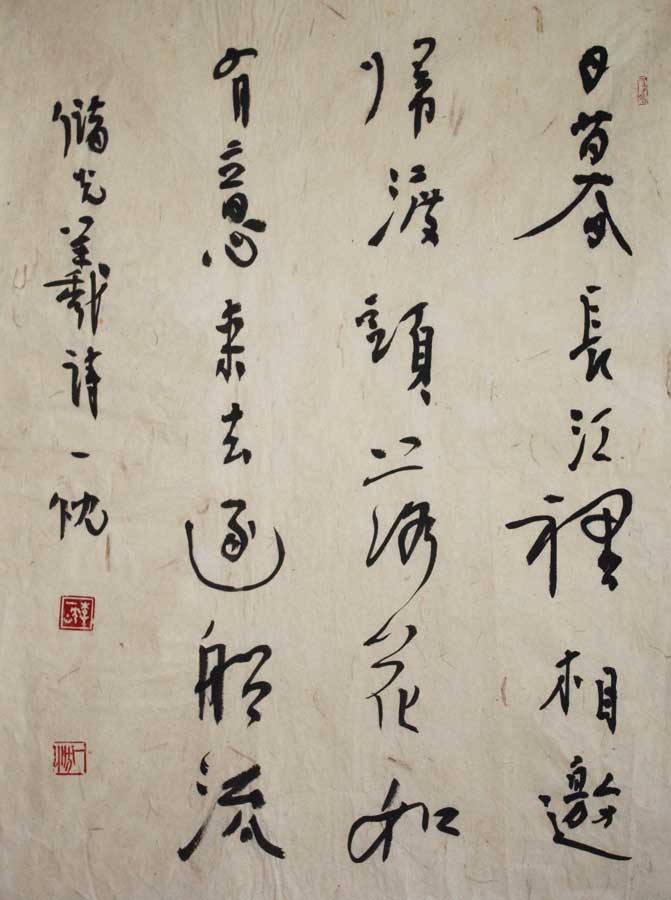 日暮長江裡相邀
歸渡頭落花如
有意来去逐船流
儲光羲詩一